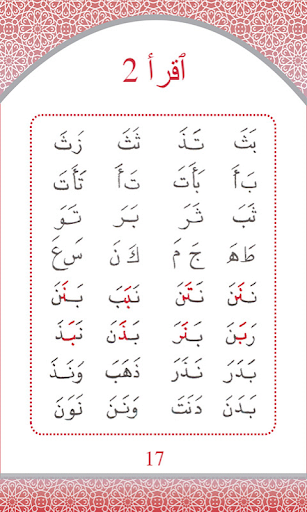 ٱقرأ 2
بَثَ تَذَ ثَثَ زَثَ
بَأَ بَأَتَ تَأَ تَأَتَ
ثَبَ ثَرَ بَرَ تَوَ
طَهَ جَ مَ كَ نَ سَ عَ
نَنَنَ نَتَنَ نَبَبَ بَنَنَ
رَبَنَ بَذَنَ نَبَذَ
بَدَرَ نَذَرَ ذَهَبَ وَنَذَ
بَدَنَ دَنَتَ وَنَنَ نَوَنَ
17